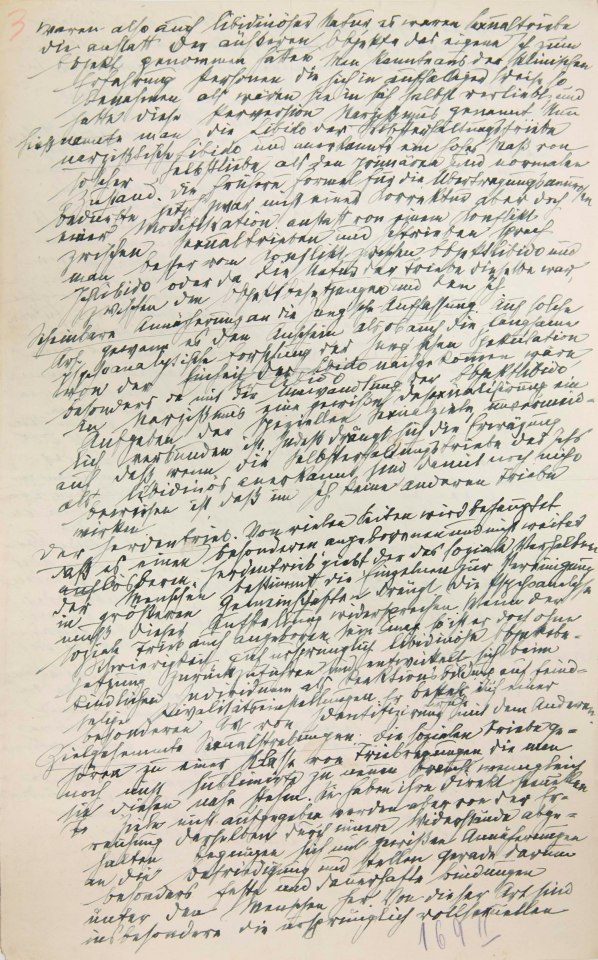 3
waren also auch libidinöser Natur es waren Sexualtriebe
die anstatt der äußeren Objekte das eigene Ich zum
Objekt genommen hatten. Man kannte aus der klinischen
Erfahrung Personen die sich in auffallend Weise so
benehmen als wären sie in sich selbst verliebt und
hatte diese Perversion Narzißmus genannt. Nun
nannte man die Libido der Selbsterhaltungstriebe
narzißtische Libido und anerkannte ein hohes Maß von
solcher Selbstliebe als den primären und normalen
Zustand. Die frühere Formel für die Übertragungsneurosen
bedurfte jetzt zwar nicht einer Korrektur aber doch
einer Modifikation anstatt von einem Konflikt
zwischen Sexualtrieben und Ichtrieben sprach
man besser vom Konflikt zwischen Objektlibido und
Ichlibido oder da die Natur der Triebe dieselbe war,
zwischen den Objektbesetzungen und dem Ich
Scheinbare Annäherung an die Jung'sche Auffassung. Auf solche
Art gewann es den Anschein als ob auch die langsame
psychoanalytische Forschung der Jung'schen Spekulation
von der Einheit der Libido nachgekommen wäre
besonders da mit der Umwandlung der Objektlibido
in Narzißmus eine gewisse Desexualisirung ein
Aufgeben der speziellen Sexualziele unvermeid-
lich verbunden ist. Indeß drängt sich die Erwägung
auf daß wenn die Selbsterhaltungstriebe des Ichs
als libidinös anerkannt sind damit noch nicht
bewiesen ist daß im Ich keine anderen Triebe
wirken.
Der Herdentrieb. Von vielen Seiten wird behauptet
daß es einen besonderen angeborenen und nicht weiter
auflösbaren Herdentrieb giebt der das soziale Verhalten
der Menschen bestimmt die Einzelnen zur Vereinigung
in größeren Gemeinschaften drängt. Die Psychoanalyse
muß dieser Aufstellung widersprechen. Wenn der
soziale Trieb auch angeboren sein mag so ist er doch ohne
Schwierigkeit auf ursprünglich libidinöse Objektbe-
setzung zurückzuführen und entwickelt sich beim
kindlichen Individuum als Reaktionsbildung auf feind-
selige Rivalitätseinstellungen. Er beruht auf einer
besonderen Art von Identifizirung mit dem Anderen
Zielgehemmte Sexualstrebungen. Die sozialen Triebe ge-
hören zu einer Klasse von Triebregungen die man
noch nicht sublimirte zu nennen braucht wenngleich
sie diesen nahe stehen. Sie haben ihre direkt sexuellen
Ziele nicht aufgegeben werden aber von der Er-
reichung derselben durch innere Widerstände abge-
halten begnügen sich mit gewißen Annäherungen
an die Befriedigung und stellen gerade darum
besonders feste und dauerhafte Bindungen
unter den Menschen her. Von dieser Art sind
insbesondere die ursprünglich vollsexuellen